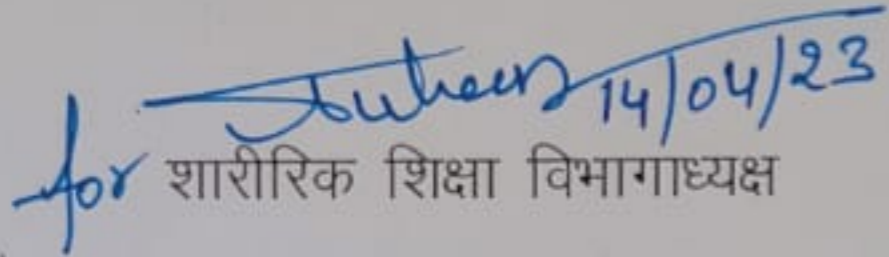 14/04/23
for शारीरिक शिक्षा विभागाध्यक्ष